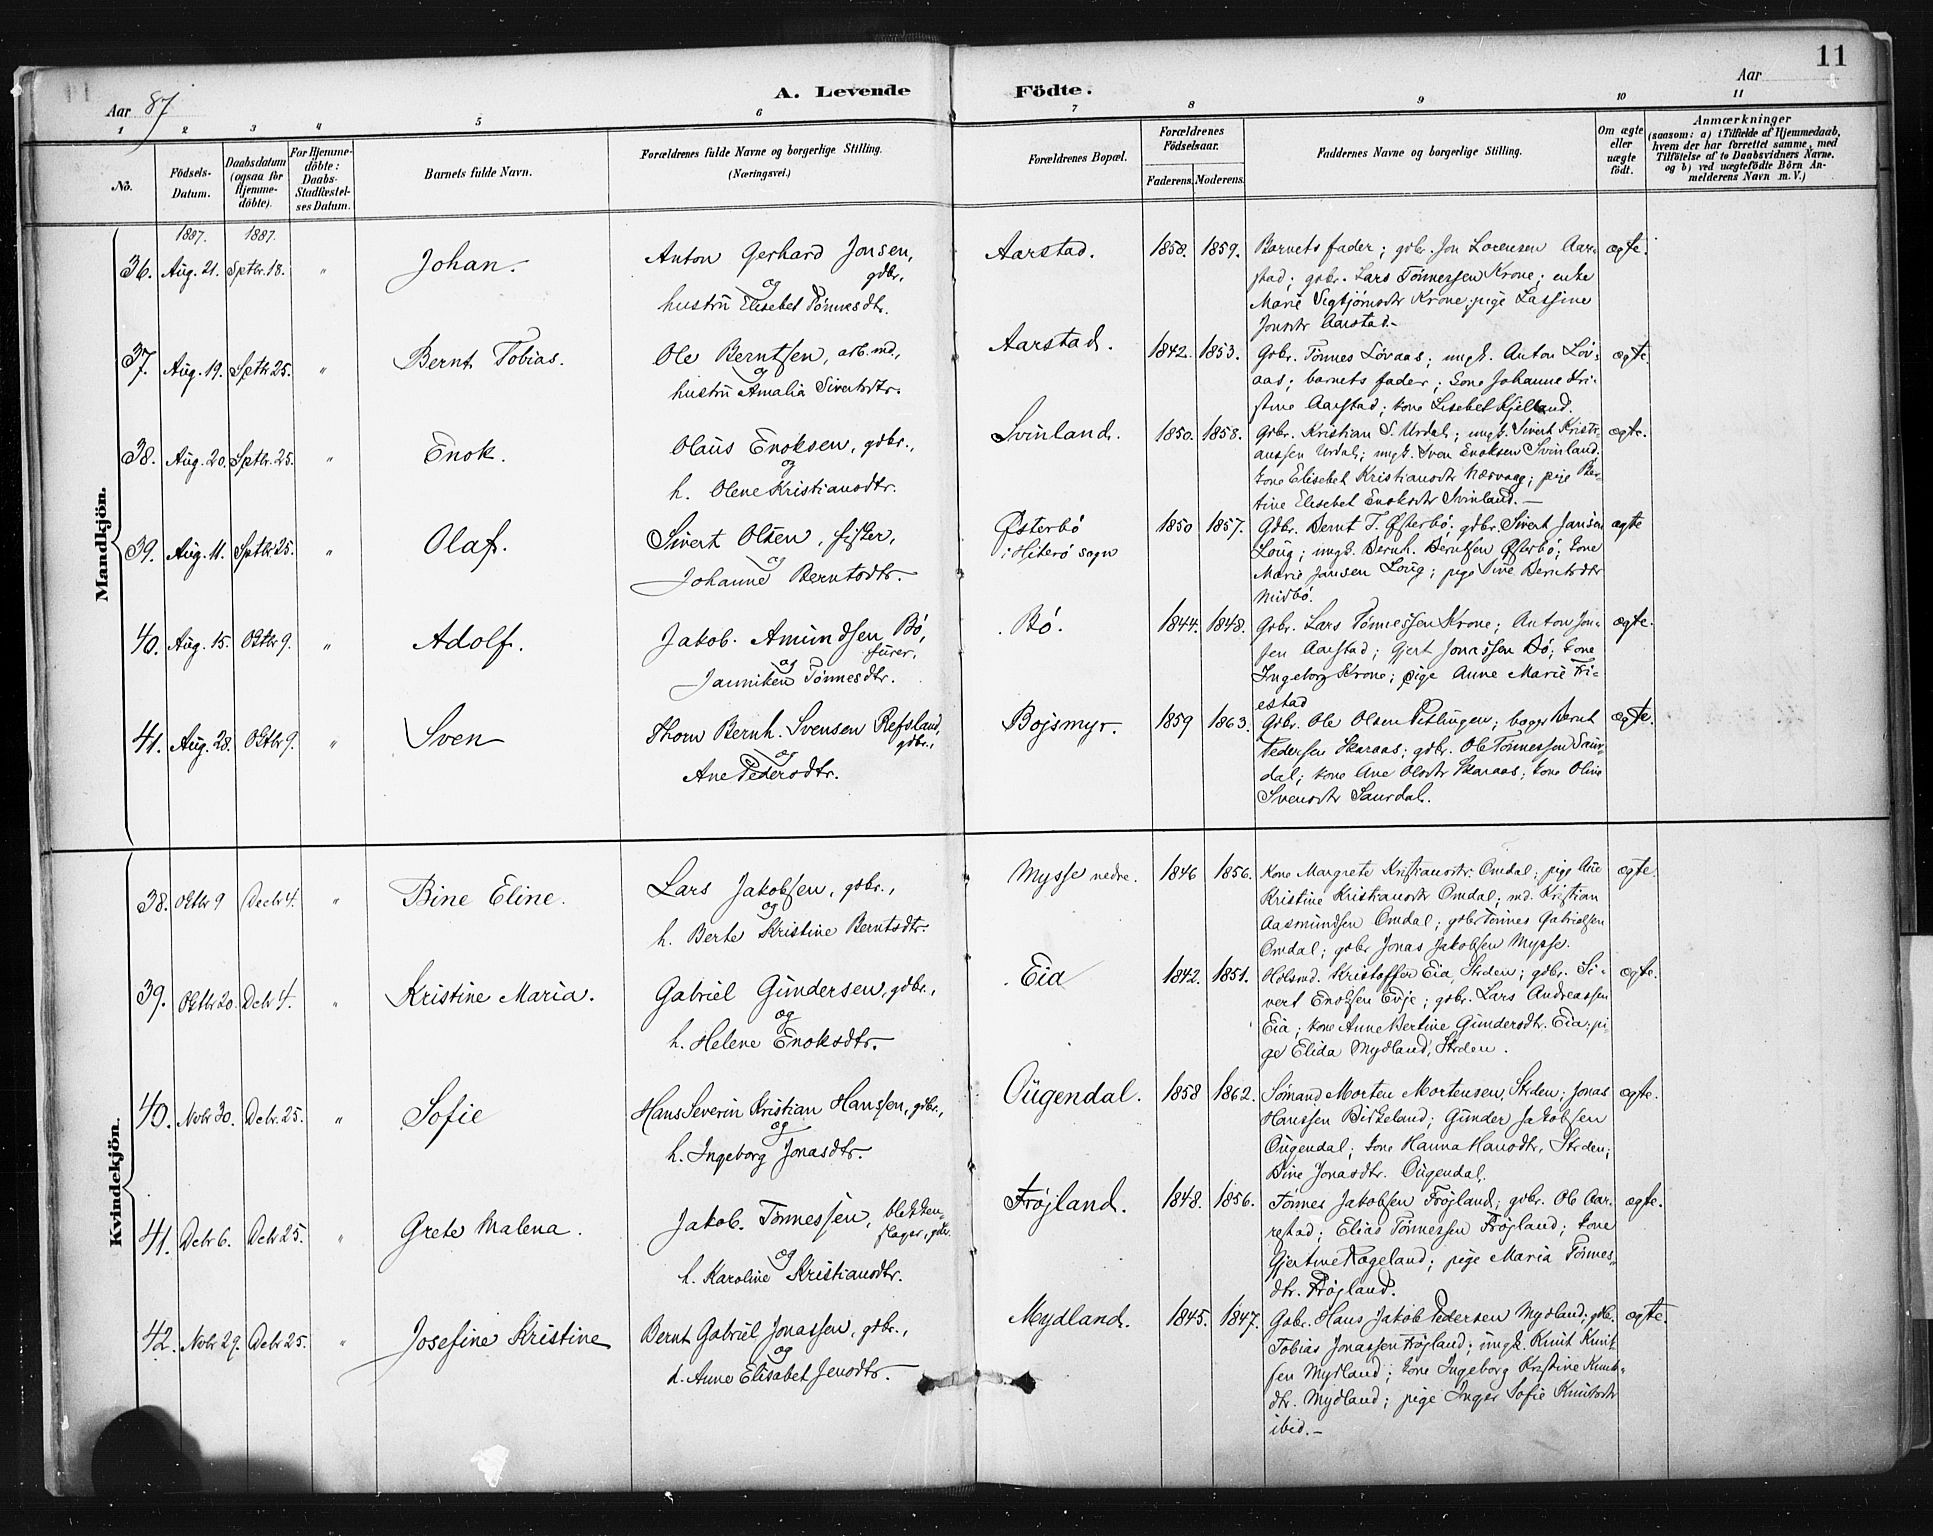 11
Aar 87
A. Levende Födte.
Aar
1 2 3 4 5 6 7 8 9 10 11
No.
Födsels-Datum.
Daabsdatum (ogsaa for Hjemme-döbte).
For Hjemme-döbte: Daabs-Stadfæstel-ses Datum.
Barnets fulde Navn.
Forældrenes fulde Navne og borgerlige Stilling.
(Næringsvei.)
Forældrenes Bopæl.
Forældrenes Födselsaar.
Faderens. Moderens.
Faddernes Navne og borgerlige Stilling.
Om ægte eller uægte födt.
Anmærkninger
(saasom: a) i Tilfælde af Hjemmedaab,
hvem der har forrettet samme, med
Tilföielse af to Daabsvidners Navne.
og b) ved uægtefödte Börn An-
melderens Navn m. V.)
Mandkjön.
1887. 1887.
36. Aug. 21. Septbr. 18. " Johan. Anton Gerhard Jonsen, gdbr., og hustru Elisebet Tönnesdtr. Aarstad. 1858. 1859. Barnets fader; gdbr. Jon Lorensen Aar-
stad; gdbr. Lars Tönnessen Krone; enke
Marie Sigbjörnsdtr Krone; pige Lassine
Jonsdtr Aarstad.-
37. Aug. 19. Septbr 25. " Bernt Tobias. Ole Berntsen, arb.md., og hustru Amalia Sivertsdtr. Aarstad. 1842. 1853. Gdbr. Tönnes Lövaas; ungk. Anton Löv-
aas; barnets fader; kone Johanne Kri-
stine Aarstad; kone Lisebet Kjelland.
38. Aug. 20. Septbr. 25. " Enok. Olaus Enoksen, gdbr., og h. Olene Kristiansdtr. Svinland. 1850. 1858. Gdbr. Kristian S. Urdal; ungk. Sivert Kristi-
anssen Urdal; ungk. Sven Enoksen Svinland.
kone Elisebet Kristiansdtr Nærvaag; pige Ber-
tine Elisebet Enoksdtr Svinland.-
39. Aug. 11. Septbr 25. " Olaf. Sivert Olsen, fisker, og Johanne Berntsdtr. Østerbö i Hiterö sogn 1850 1857. Gdbr. Bernt T. Østerbö; gdbr. Sivert Jansen
Loug; ungk. Bernh. Berntsen Østerbö; kone
Marie Jansen Loug; pige Sine Berntsdtr
Midbö.
40. Aug. 15. Oktbr 9. " Adolf. Jakob Amundsen Bö, furer, og Janniken Tönnesdtr. Bö. 1844. 1848. Gdbr. Lars Tönnessen Krone; Anton Jon-
sen Aarstad; Gjert Jonassen Bö; kone
Ingeborg Krone; pige Anne Marie Fri-
estad
41. Aug. 28. Oktbr 9. " Sven Thorn Bernh. Svensen Refsland, gdbr., og Ane Pedersdtr. Bojsmyr. 1859 1863. Gdbr. Ole Olsen Pitlingen; bager Bernt
Pedersen Skaraas; gdbr. Ole Tönnessen Saur-
dal; kone Ane Olsdtr Skaraas; kone Oline
Svensdtr Saurdal.
ægte. ægte. ægte. ægte ægte. ægte.
Kvindekjön.
38. Oktbr 9 Decbr 4. " Bine Eline. Lars Jakobsen, gdbr., og h. Berte Kristine Berntsdtr. Mysse nedre. 1846 1856. Kone Margrete Kristiansdtr Omdal; pige Ane
Kristine Kristiansdtr Omdal; md. Kristian
Aasmundsen Omdal; gdbr Tönnes Gabrielsen
Omdal; gdbr Jonas Jakobsen Mysse.
39. Oktbr 20. Dcbr 4. " Kristine Maria. Gabriel Gundersen, gdbr., og h. Helene Enoksdtr. Eia 1842. 1851. Holsmd. Kristoffer Eia, Strden; gdbr. Si-
vert Enoksen Evje; gdbr. Lars Andreassen
Eia; kone Anne Bertine Gundersdtr. Eia; pi-
ge Elida Mydland, Strden.
40. Novbr 30. Dcbr. 25. " Sofie Hans Severin Kristian Hanssen, gdbr., og h. Ingeborg Jonasdtr. Ougendal. 1858 1862. Sömand Morten Mortensen, Strden; Jonas
Hanssen Birkeland; Gunder Jakobsen
Ougendal; kone Hanna Hansdtr, Strden;
Bine Jonasdtr. Ougendal.
41. Dcbr 6. Dcbr 25. " Grete Malena. Jakob Tönnessen, blikken-slager, gdbr. og h. Karoline Kristiansdtr. Fröjland. 1848. 1856. Tönnes Jakobsen Fröjland; gdbr. Ole Aar-
restad; Elias Tönnessen Fröjland; kone
Gjertine Rageland; pige Maria Tönnes-
dtr. Fröjland.
42. Novbr 29. Dcbr 25. " Josefine Kristine Bernt Gabriel Jonassen, gdbr., og h. Anne Elisabet Jensdtr. Mydland. 1845. 1847. Gdbr. Hans Jakob Pedersen Mydland; gdb.
Tobias Jonassen Fröjland; ungk. Knut Knut-
sen Mydland; kone Ingeborg Kristine Knuts-
dtr. Mydland; pige Inger Sofie Knutsdtr
ibid.-
ægte. ægte. ægte. ægte. ægte.